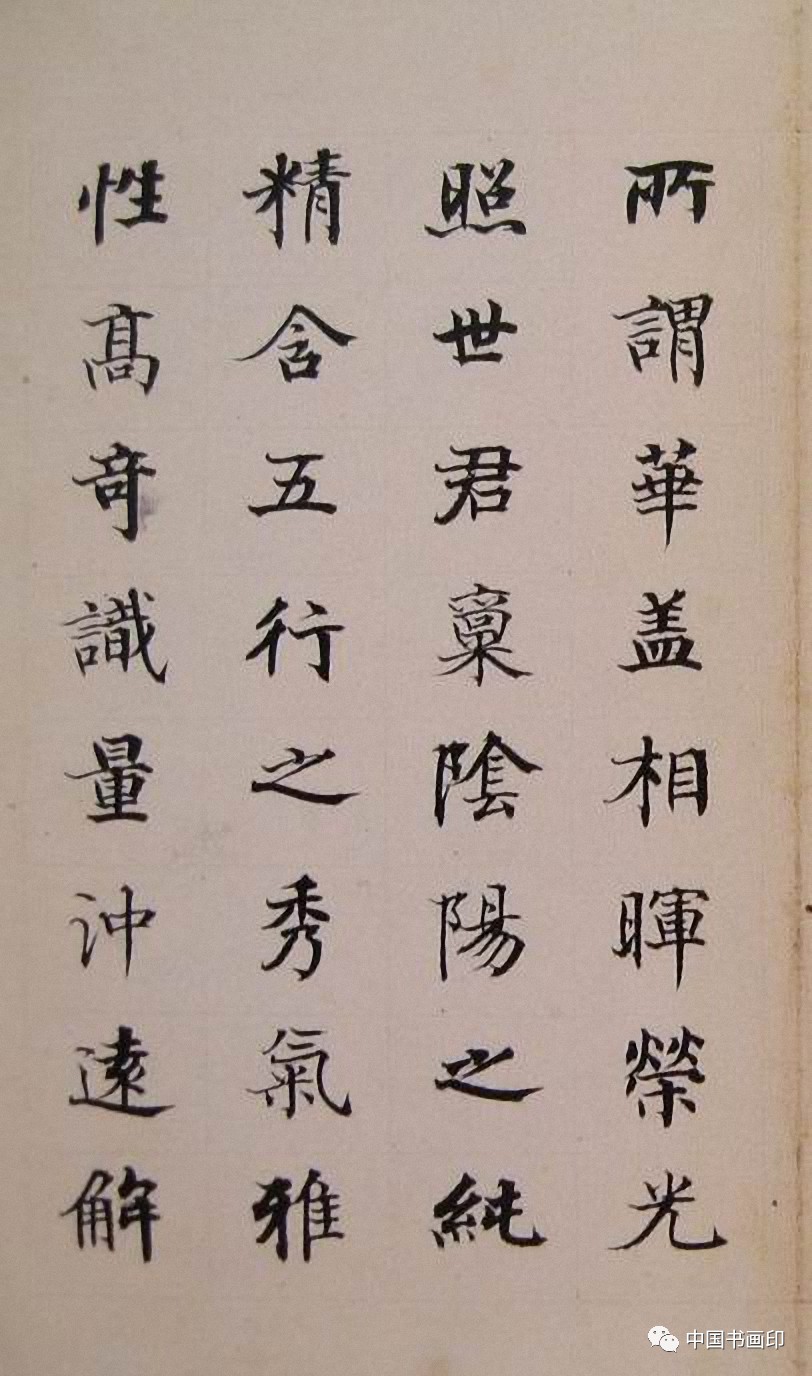 所謂華盖相暉榮光
照世君稟陰陽之純
精含五行之秀氣雅
性髙奇識量沖遠解
中国书画印